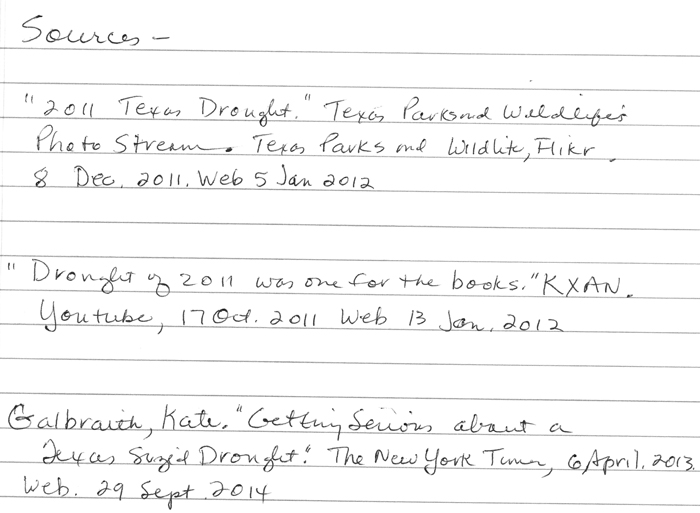 Sources -
"2011 Texas Drought." Texas Parks and Wildlife's
Photo Stream. Texas Parks and Wildlife, Flikr.
8 Dec. 2011. Web 5 Jan 2012
"Drought of 2011 was one for the books." KXAN.
Youtube, 17 Oct. 2011 Web 13 Jan. 2012
Galbraith, Kate. "Getting Serious about a
Texas Sized Drought." The New York Times, 6 April. 2013.
Web. 29 Sept 2014